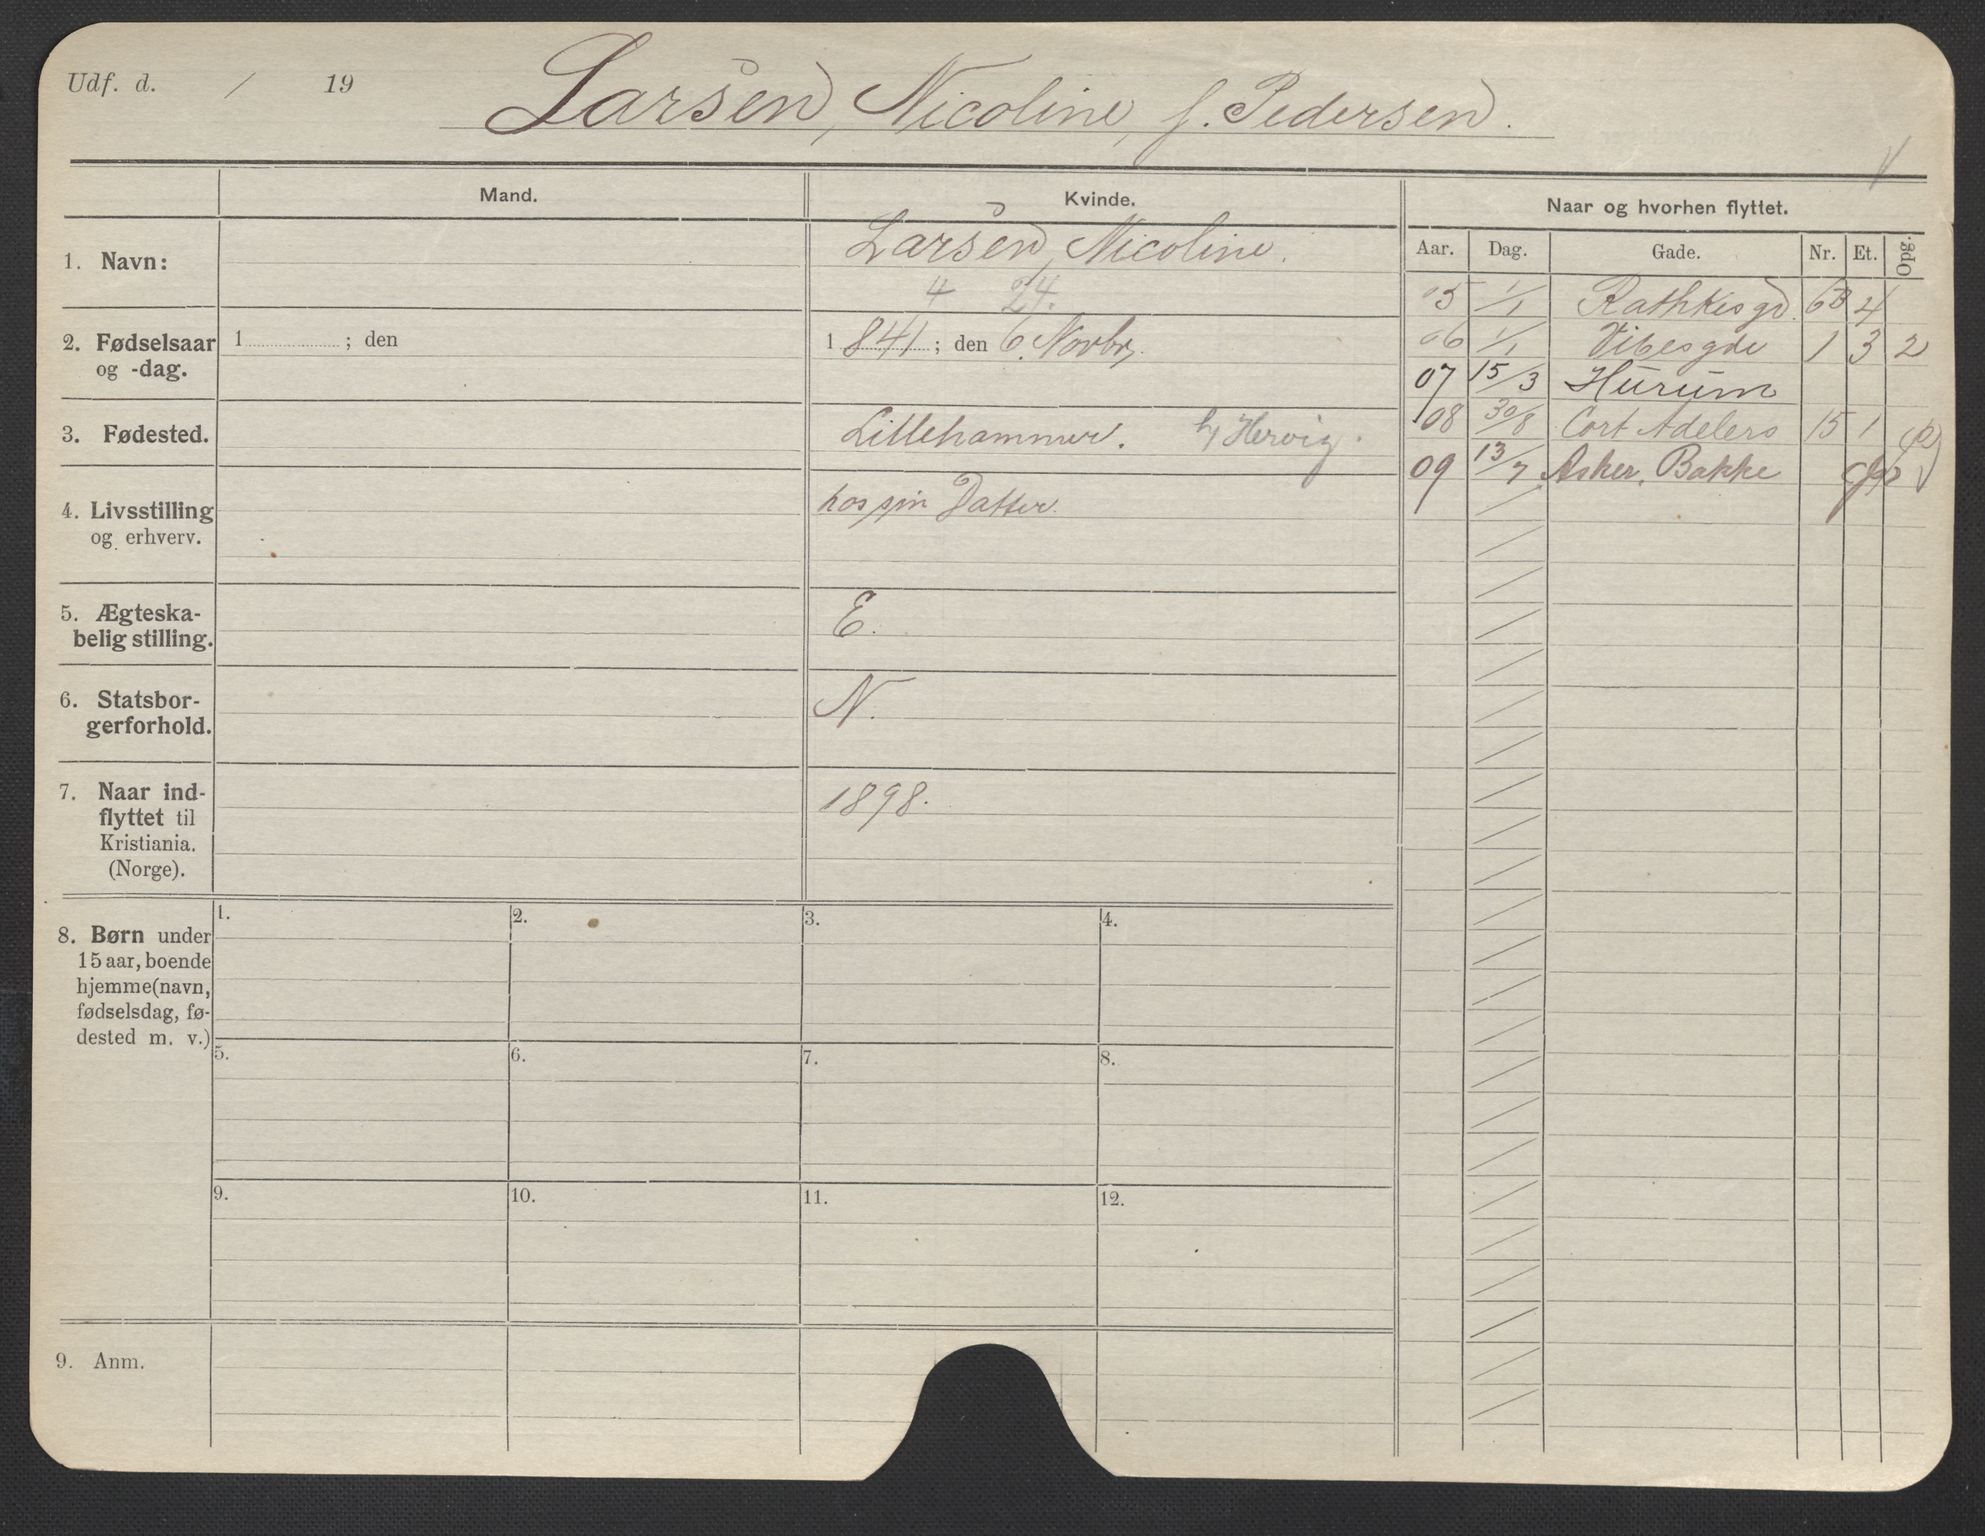 Udf. d. / 19
Larsen, Nicoline, f. Pedersen.
Mand.
Kvinde.
Naar og hvorhen flyttet.
Aar. Dag. Gade. Nr. Et. Opg.
1. Navn:
Larsen, Nicoline.
4 24.
2. Fødselsaar
og -dag.
1 ; den
1 841 ; den 6. Novbr.
3. Fødested.
Lillehammer. h/ Hervig.
4. Livsstilling
og erhverv.
hos sin Datter.
5. Ægteska-
belig stilling.
E.
6. Statsbor-
gerforhold.
N.
7. Naar ind-
flyttet til
Kristiania.
(Norge).
1898.
8. Børn under
15 aar, boende
hjemme(navn,
fødselsdag, fø-
dested m. v.)
1. 2. 3. 4.
5. 6. 7. 8.
9. 10. 11. 12.
9. Anm.
05 1/1 Rathkesgd. 4
06 1/1 Vibesgde 1 3 2
07 15/3 Hurum
08 30/8 Cort Adelers 15 1
09 13/7 Asker, Bakke